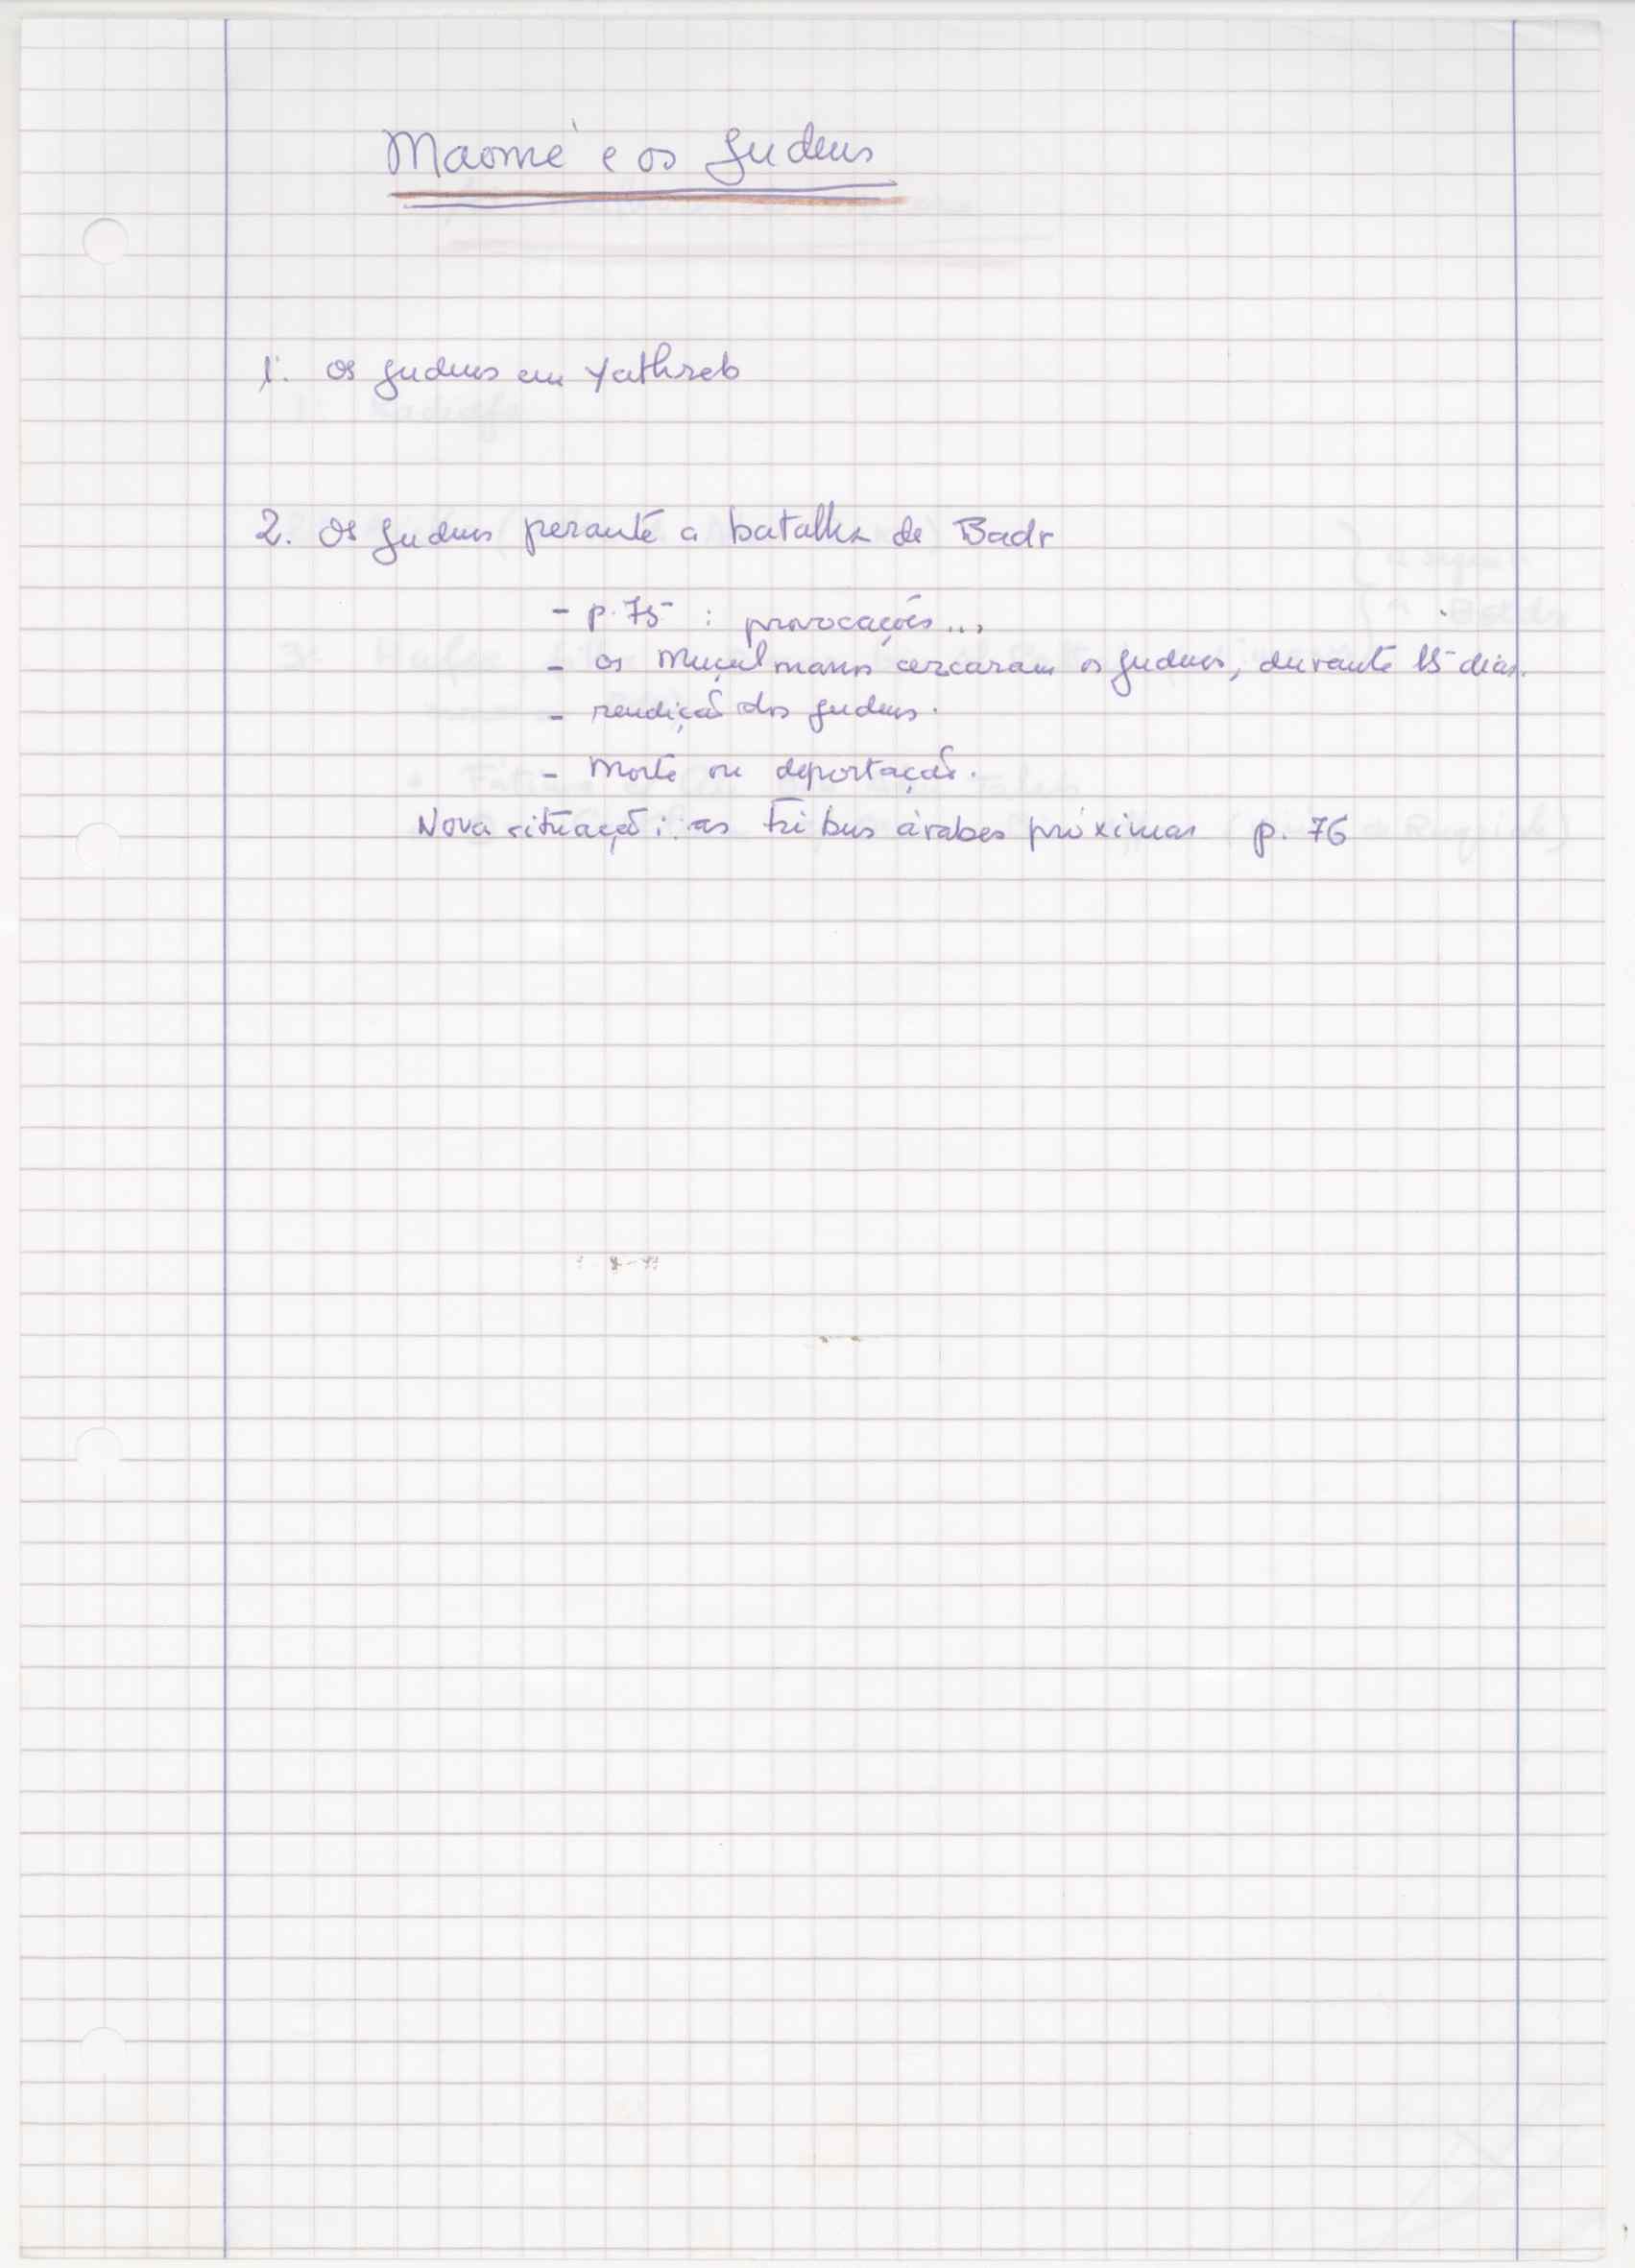 Maomé e os Judeus
1. Os Judeus em Yathreb
2. Os Judeus perante a batalha de Badr
- p. 75 : provocações...
- os Muçulmanos cercaram os Judeus, durante 15 dias.
- rendição dos Judeus.
- Morte ou deportação.
Nova situação: as tribus árabes próximas p. 76